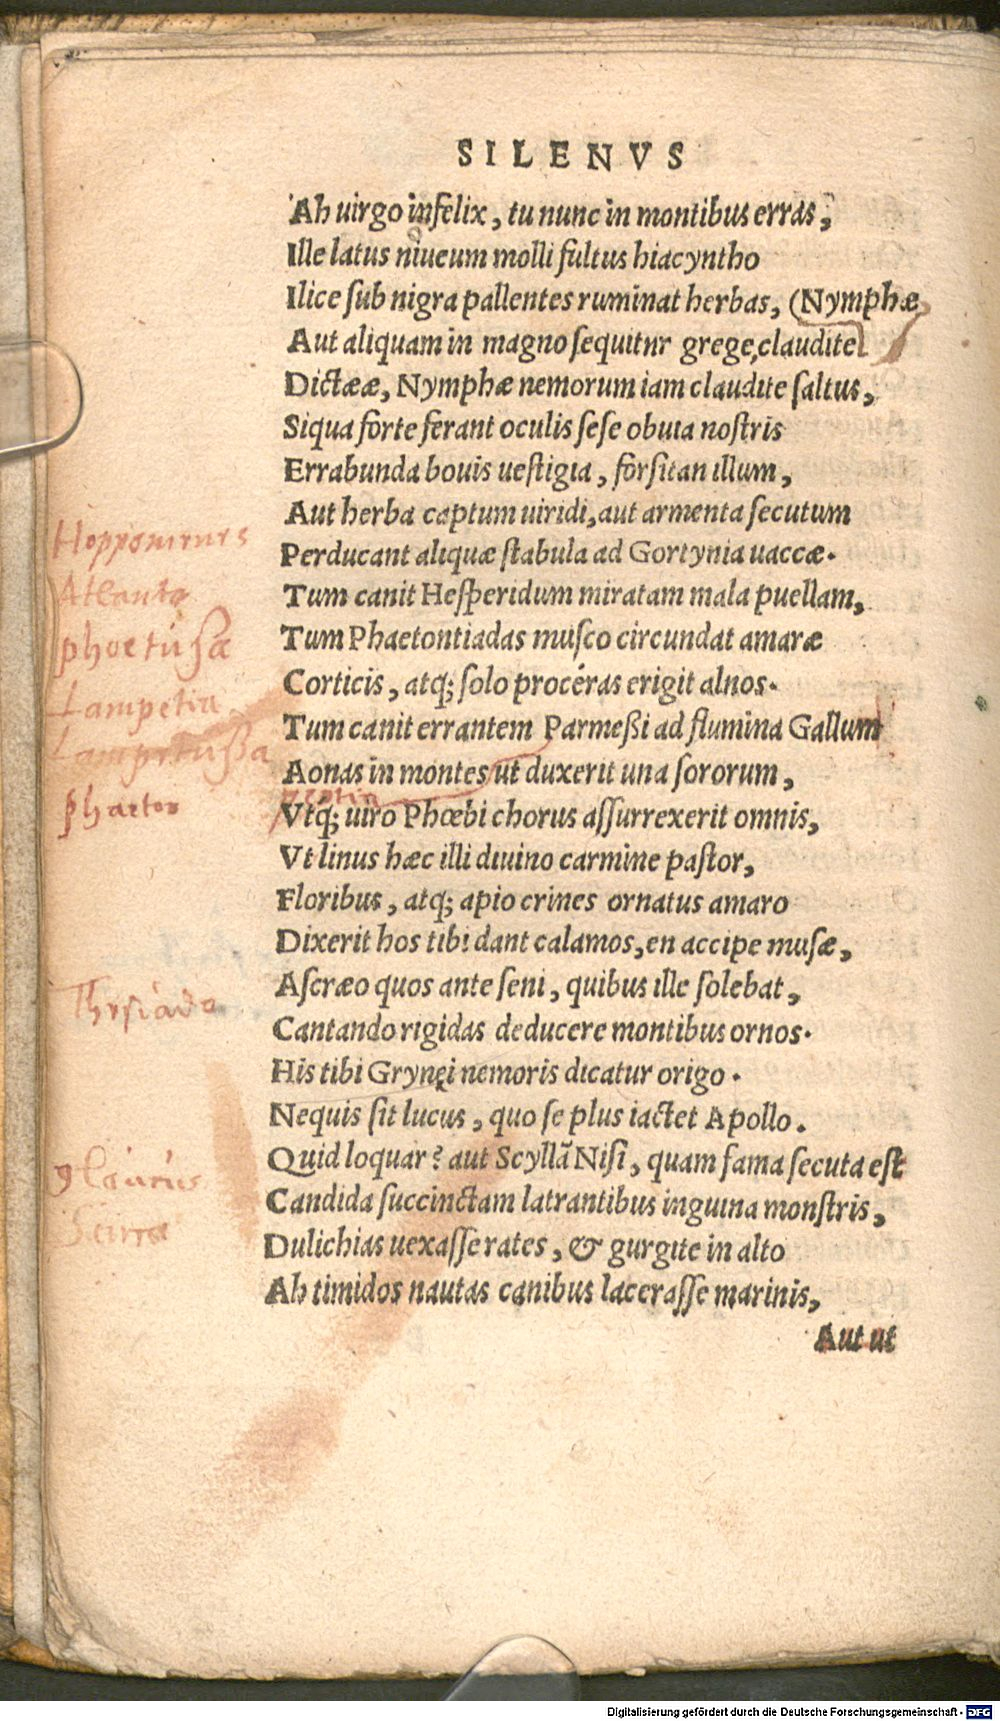 SILENVS
Ah uirgo infelix, tu nunc in montibus erras,
Ille latus niueum molli fultus hiacyntho
Ilice sub nigra pallentes ruminat herbas, (Nymphæ
Aut aliquam in magno sequitur grege, claudite
Dictææ, Nymphæ nemorum iam claudite saltus,
Siqua forte ferant oculis sese obuia nostris
Errabunda bouis uestigia, forsitan illum,
Aut herba captum uiridi, aut armenta secutum
Perducant aliquæ stabula ad Gortynia uaccæ.
Tum canit Hesperidum miratam mala puellam,
Tum Phaetontiadas musco circundat amaræ
Corticis, atq; solo procéras erigit alnos.
Tum canit errantem Parmeßi ad flumina Gallum
Aonas in montes ut duxerit una sororum,
Vtq; uiro Phœbi chorus assurrexerit omnis,
Vt linus hæc illi diuino carmine pastor,
Floribus, atq; apio crines ornatus amaro
Dixerit hos tibi dant calamos, en accipe musæ,
Ascræo quos ante seni, quibus ille solebat,
Cantando rigidas deducere montibus ornos.
His tibi Grynęi nemoris dicatur origo.
Nequis sit lucus, quo se plus iactet Apollo.
Quid loquar? aut Scyllā Nisi, quam fama secuta est
Candida succinctam latrantibus inguina monstris,
Dulichias uexasse rates, & gurgite in alto
Ah timidos nautas canibus lacerasse marinis,
Aut ut
Atlanta
phoetusa
Lampetia
Lampetussa
phaeton
glaucus
Digitalisierung gefördert durch die Deutsche Forschungsgemeinschaft - DFG